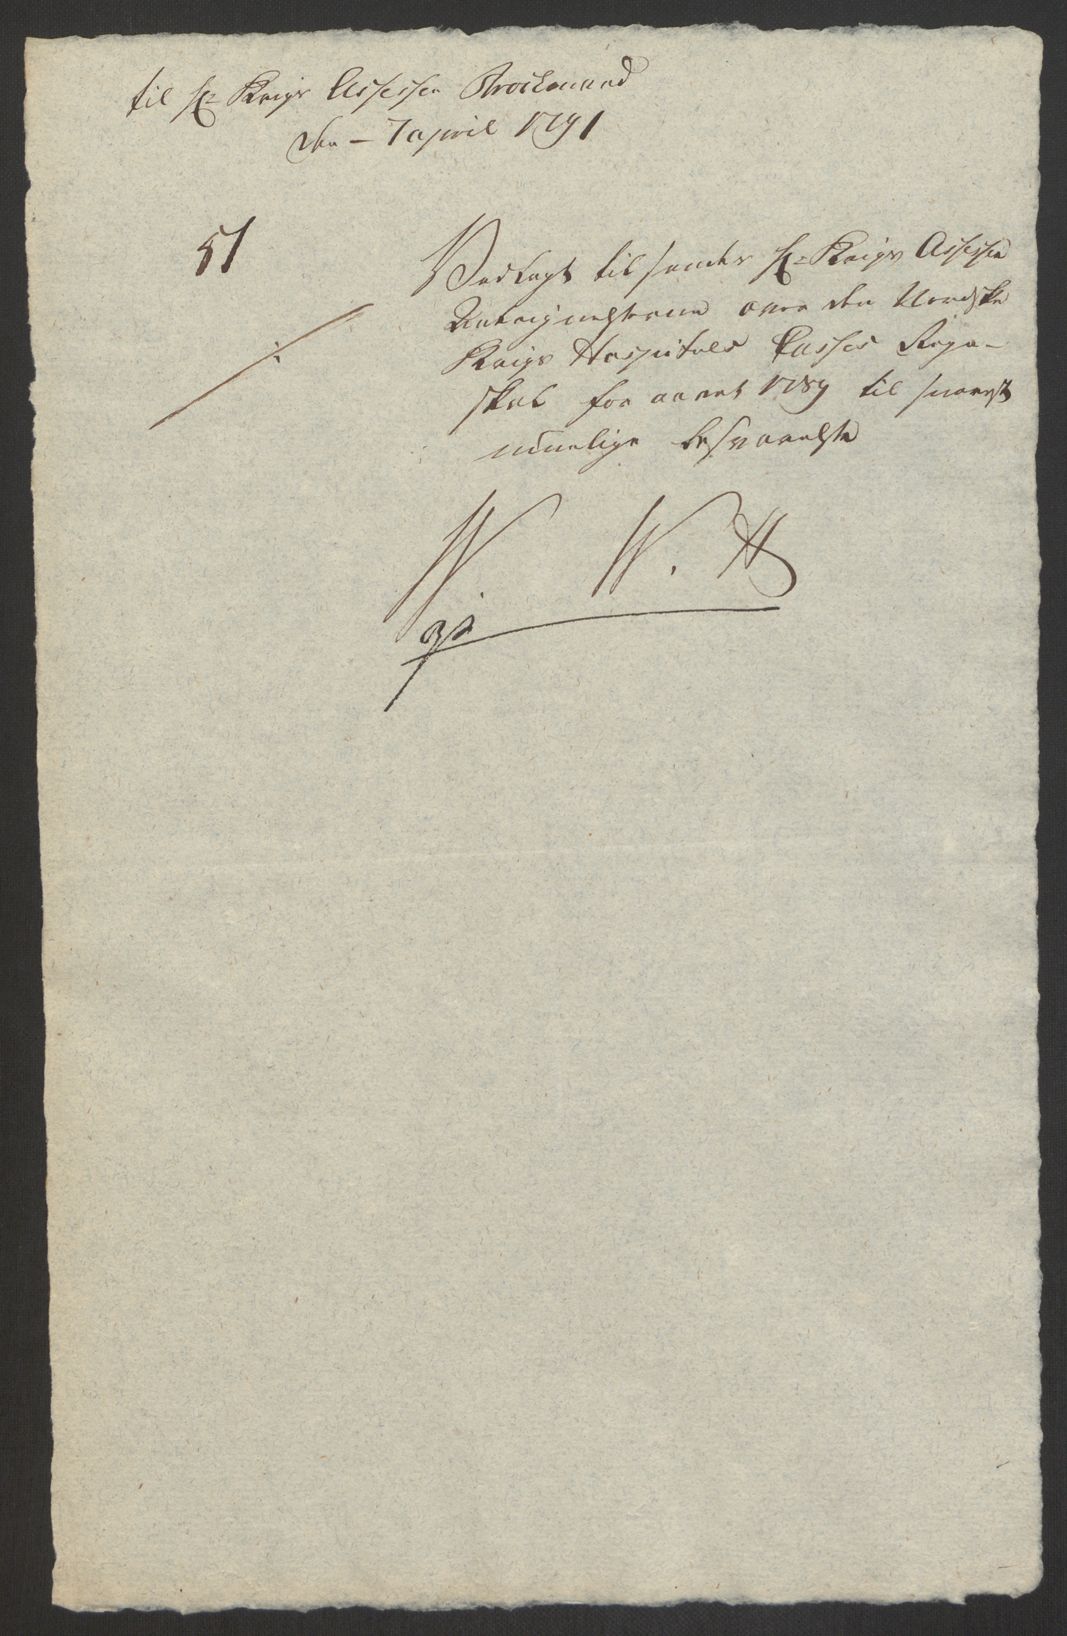 til Hr: Krigs Assessor Brockmand
den – 7 april 1791
51
Vedlagt tilsendes Hr: Krigs Assessor
Antegnelserne over den Nordske
Krigs Hospitals Casses Regn–
skab for aaret 1789 til snarest
muelige besvarelse
W. W. H